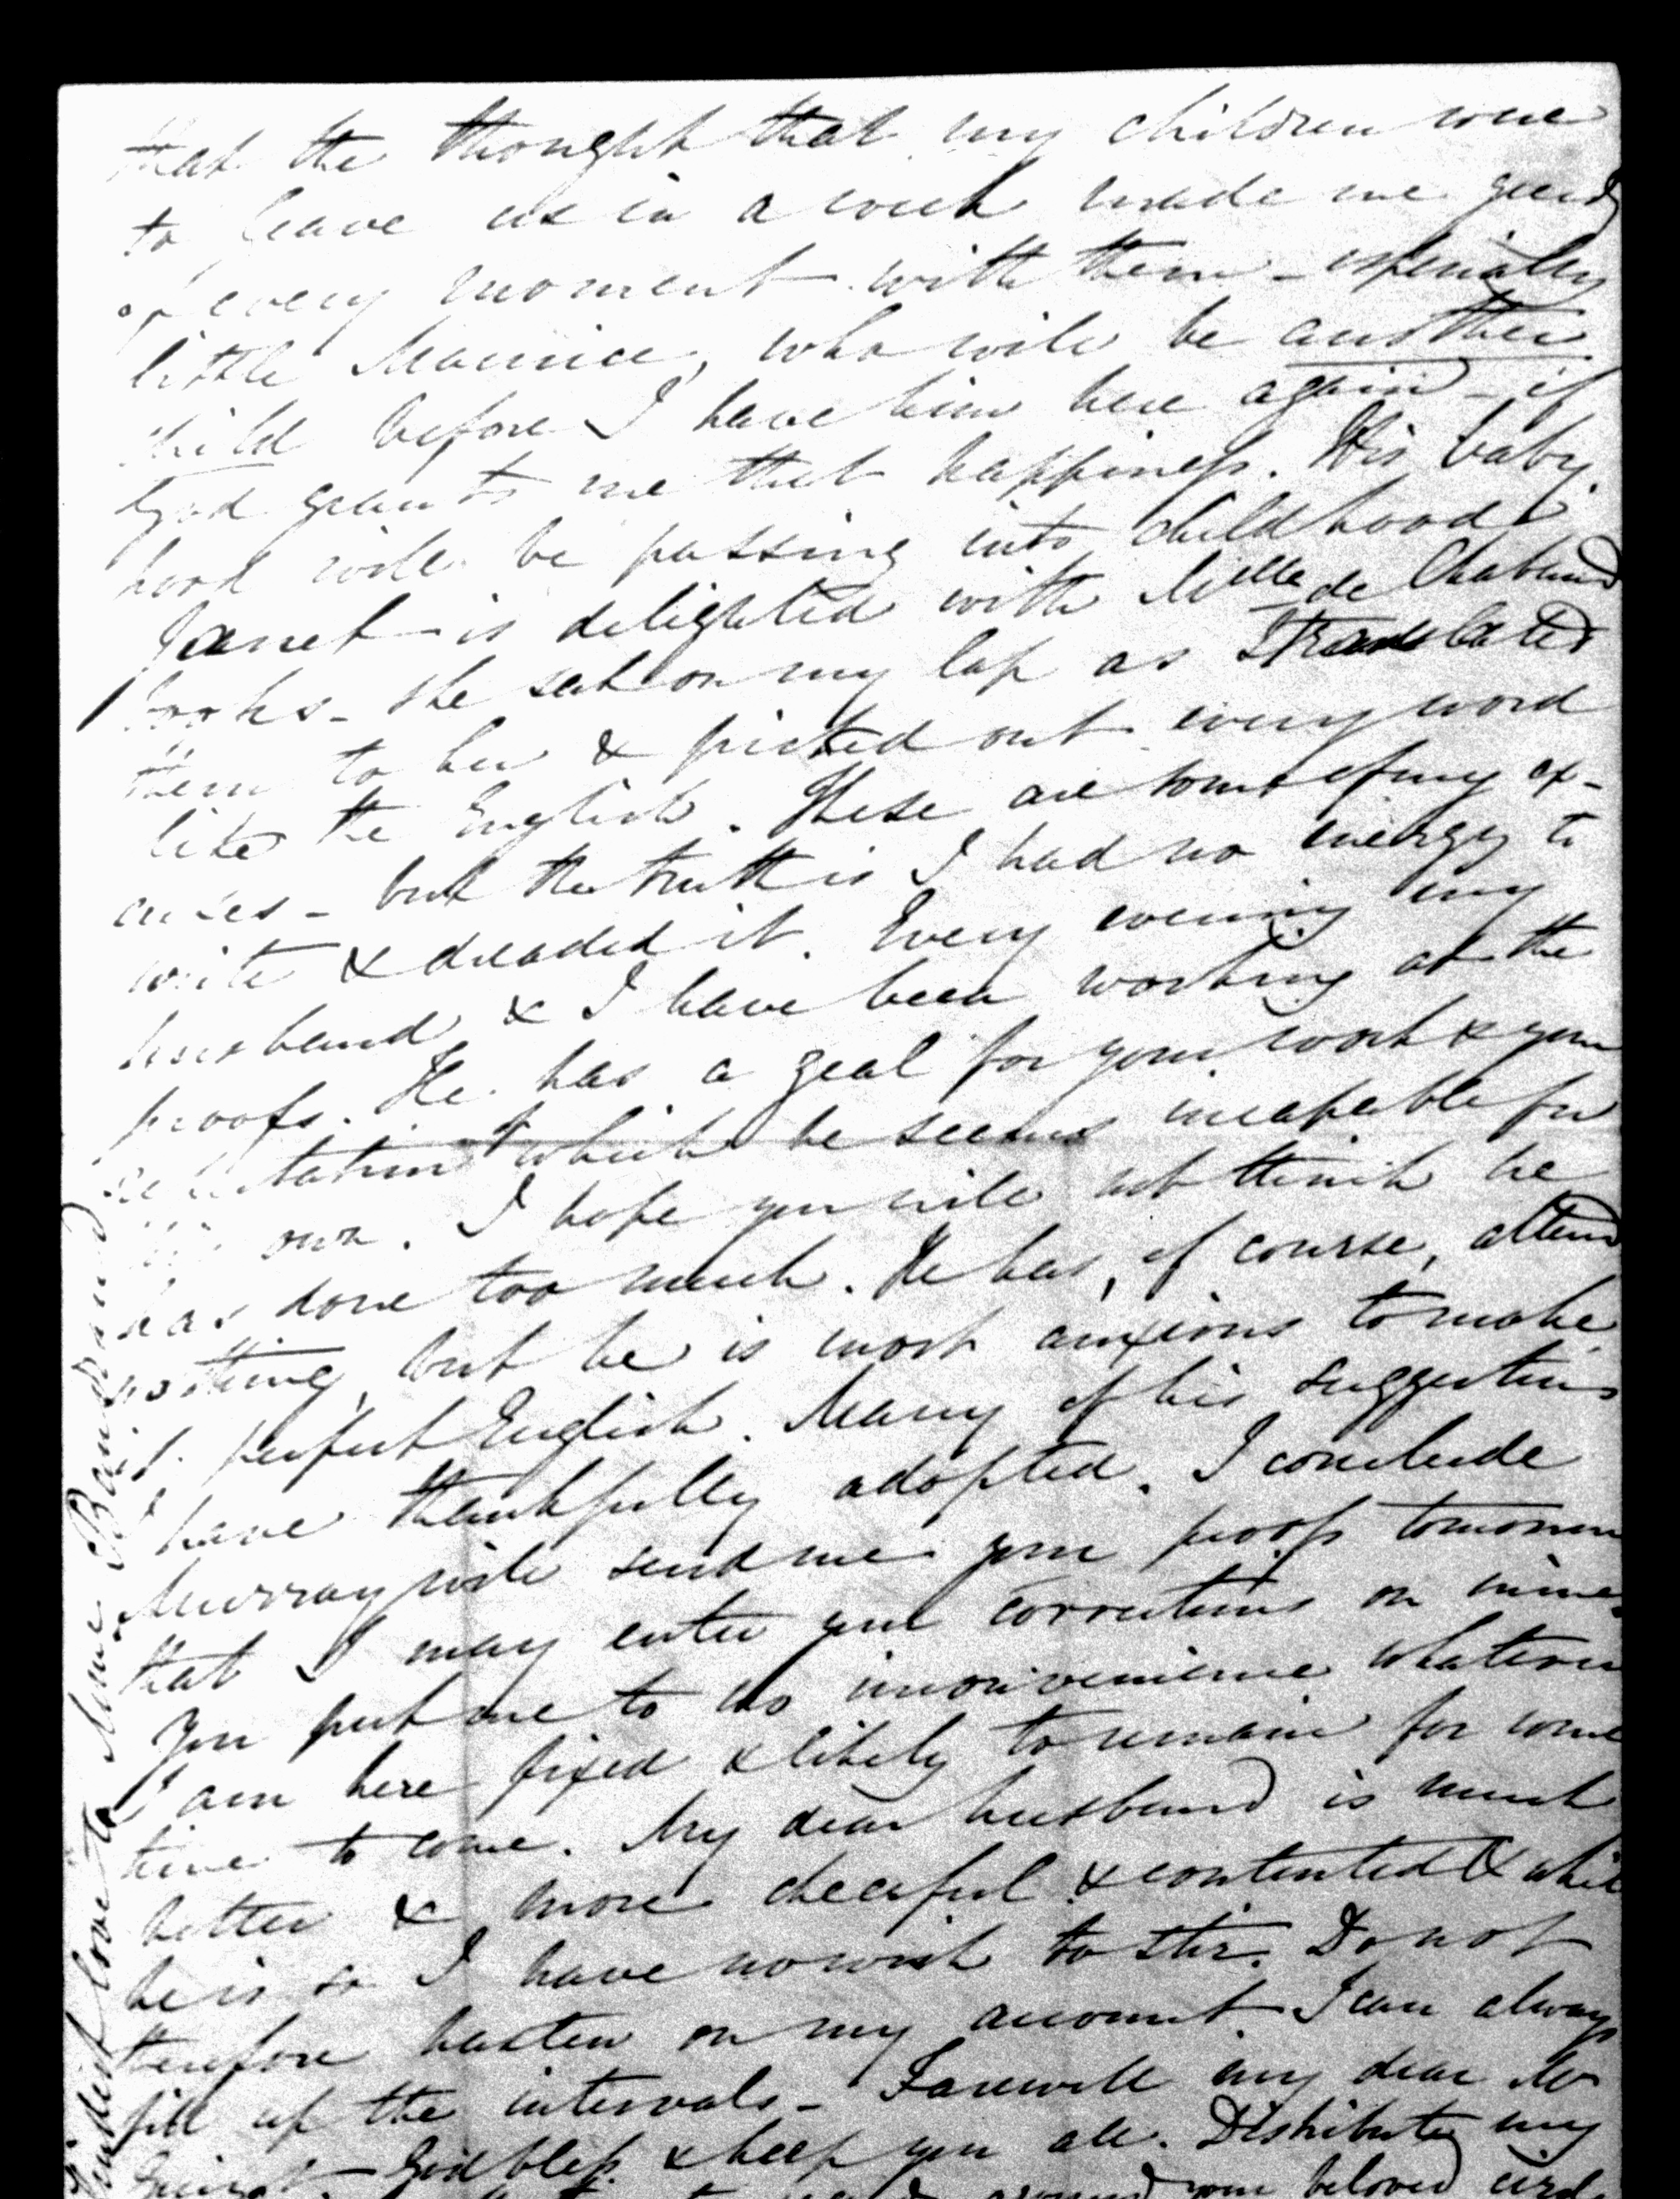 that the thought that my children were
to leave us in a week made me greedy
of every moment with them - especially
little Maurice, who will be another
child before I have him here again - if
God grants me that happiness. His baby
hood will be passing into childhood.
Janet - is delighted with Mlle de Chabaud
books - she sat on my lap as I translated
them to her & picked out every word
like the English. These are some of my ex-
cuses - but the truth is I had no energy to
write & dreaded it. Every evening my
husband & I have been working at the
proofs. He has a zeal for your work & your
reputation of which he seems incapable for
his own. I hope you will not think he
has done too much. He has, of course, altered
nothing, but he is most anxious to make
it perfect English. Many of his suggestions
I have thankfully adopted. I conclude
Murray will send me your proofs tomorrow
that I may enter your corrections on mine.
You put me to no inconvenience whatever
I am here fixed & likely to remain for some
time to come. My dear husband is much
better & more cheerful & contented & while
he is so I have no wish to stir. Do not
therefore hasten on my account. I can always
fill up the intervals - Farewell my dear Mr
Guizot - God bless & keep you all. Distribute my
around your beloved circle
kindest love to Mme